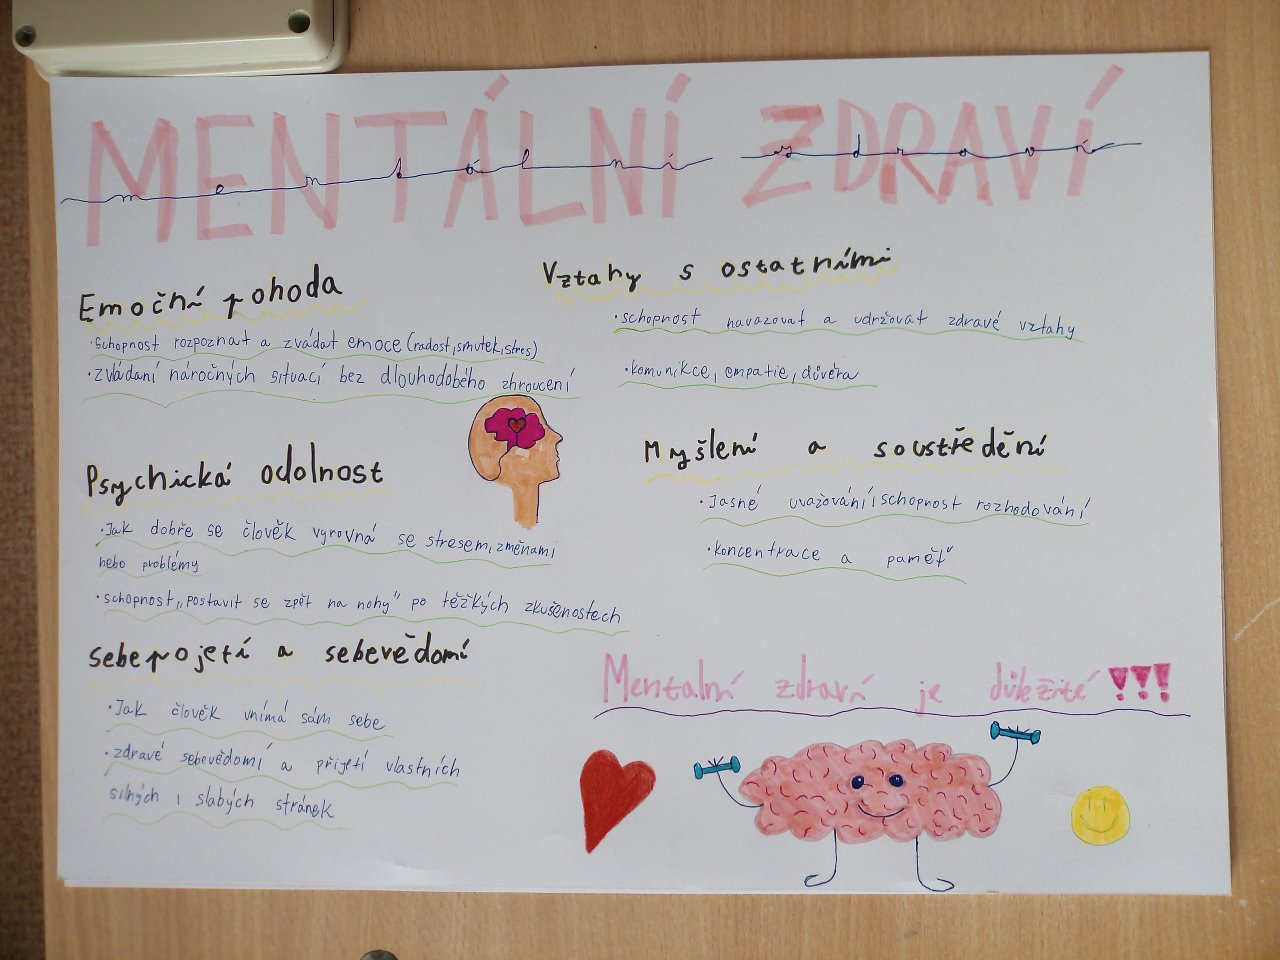 MENTÁLNÍ ZDRAVÍ
mentální zdraví
Emoční pohoda
•schopnost rozpoznat a zvádat emoce (radost, smutek, stres)
•zvládaní náročných situací bez dlouhodobého zhroucení
Psychická odolnost
•Jak dobře se člověk vyrovná se stresem, změnami
nebo problémy
•schopnost „postavit se zpět na nohy" po těžkých zkušenostech
sebepojetí a sebevědomí
•Jak člověk vnímá sám sebe
•zdravé sebevědomí a přijetí vlastních
silných i slabých stránek
Vztahy s ostatními
•schopnost navazovat a udržovat zdravé vztahy
•komunikce, empatie, důvěra
Myšlení a soustředění
•Jasné uvažování, schopnost rozhodování
•koncentrace a paměť
Mentalní zdraví je důležité !!!